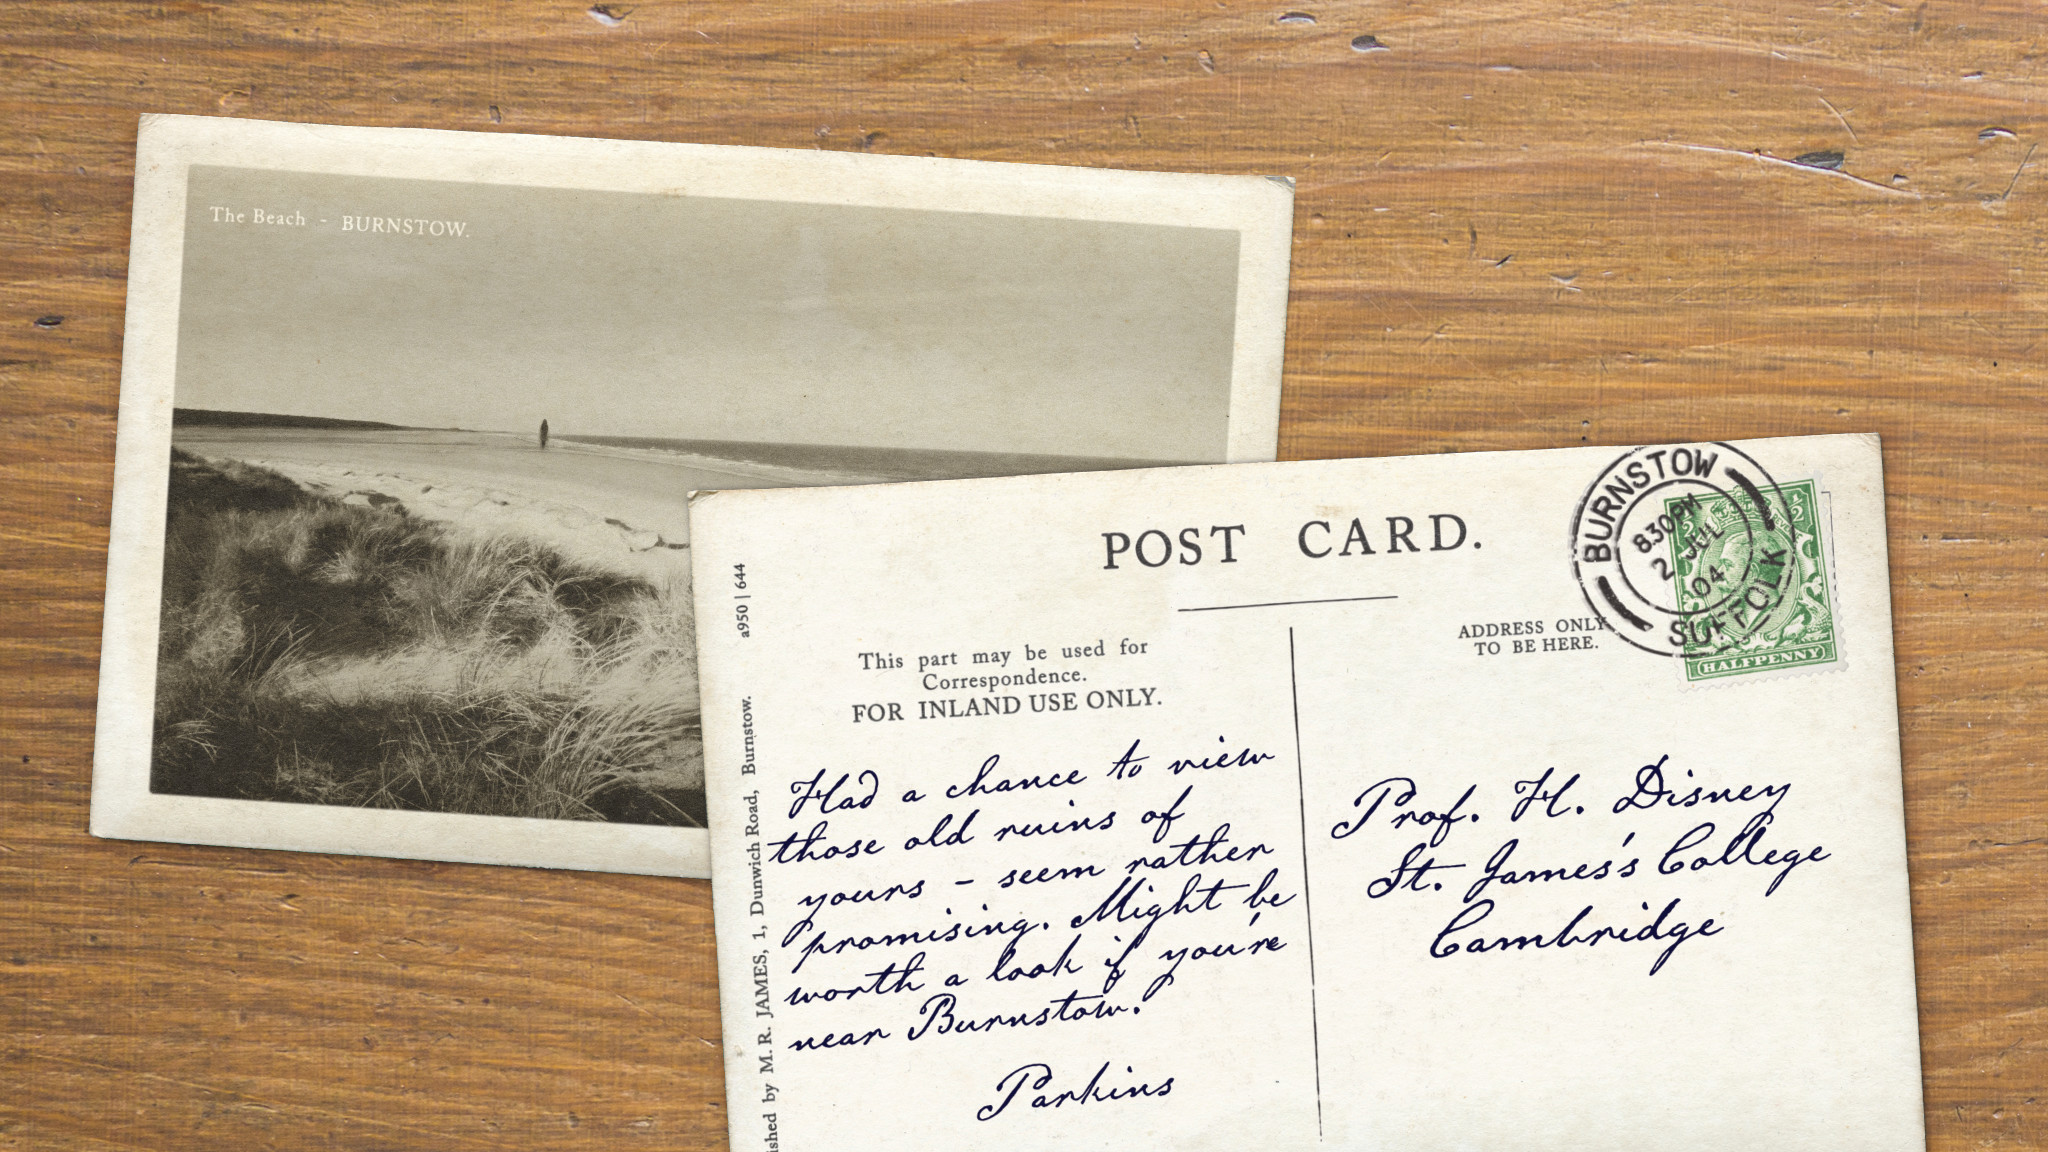 The Beach - BURNSTOW.
POST CARD.
BURNSTOW
8.30PM
2 JUL
04
SUFFOLK
1/2
HALFPENNY
ADDRESS ONLY
TO BE HERE.
This part may be used for
Correspondence.
FOR INLAND USE ONLY.
Had a chance to view
those old ruins of
yours - seem rather
promising. Might be
worth a look if you're
near Burnstow.
Parkins
Prof. H. Disney
St. James's College
Cambridge
a950 | 644
by M. R. JAMES, 1, Dunwich Road, Burnstow.